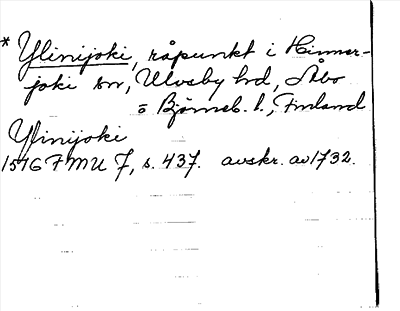 * Ylinijoki, råpunkt i Hinner-
joki sn, Ulvsby hd, Åbo
o Björneb. l., Finland
Ylinijoki
1546 FMU 7, s. 437. avskr. av 1732.